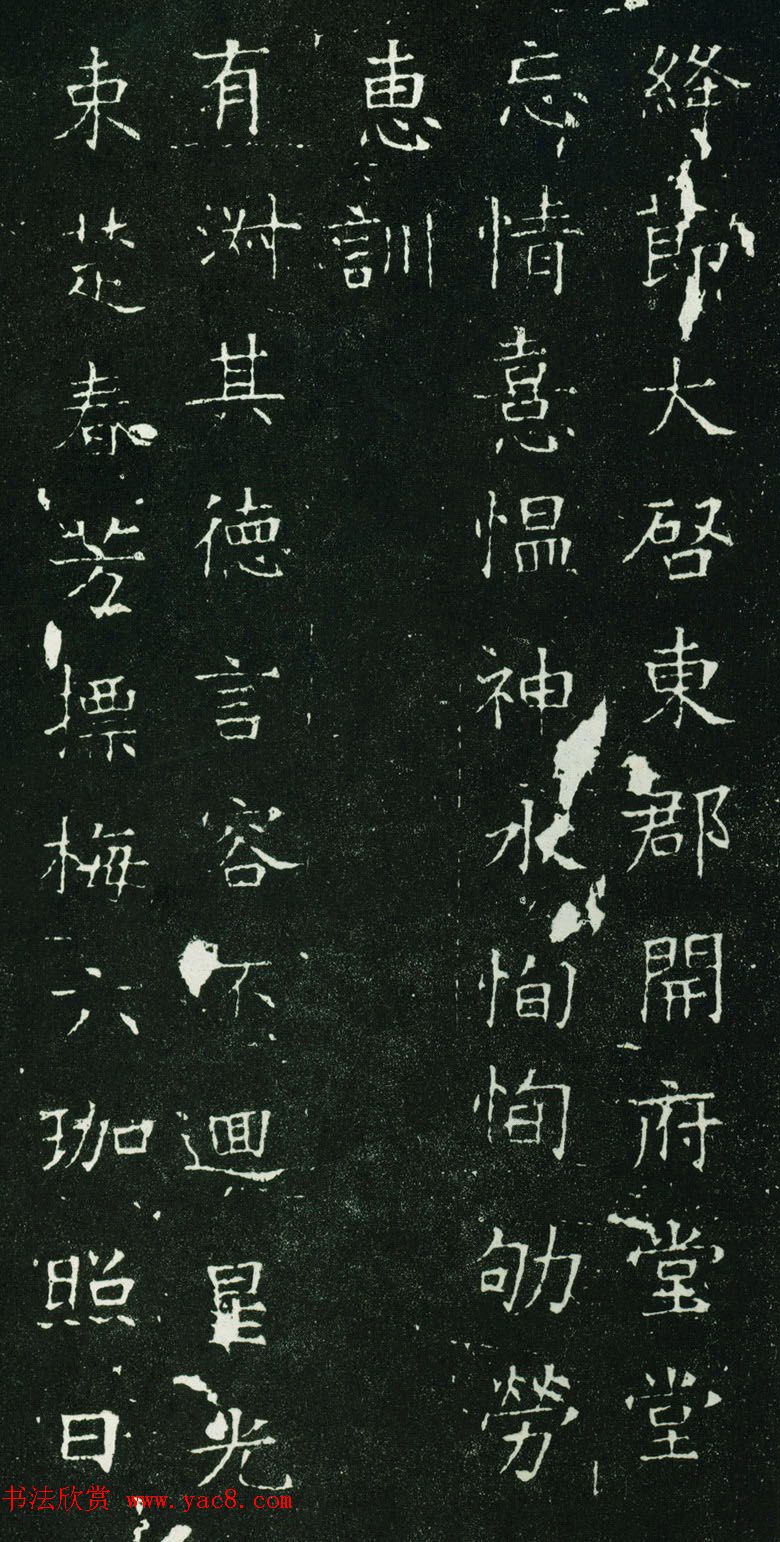 絳節大啓東郡開府堂堂
忘情憙愠神永恂恂劬勞
惠訓
有渊其德言容不迴星光
束楚春芳摽梅六珈照日
书法欣赏 www.yac8.com